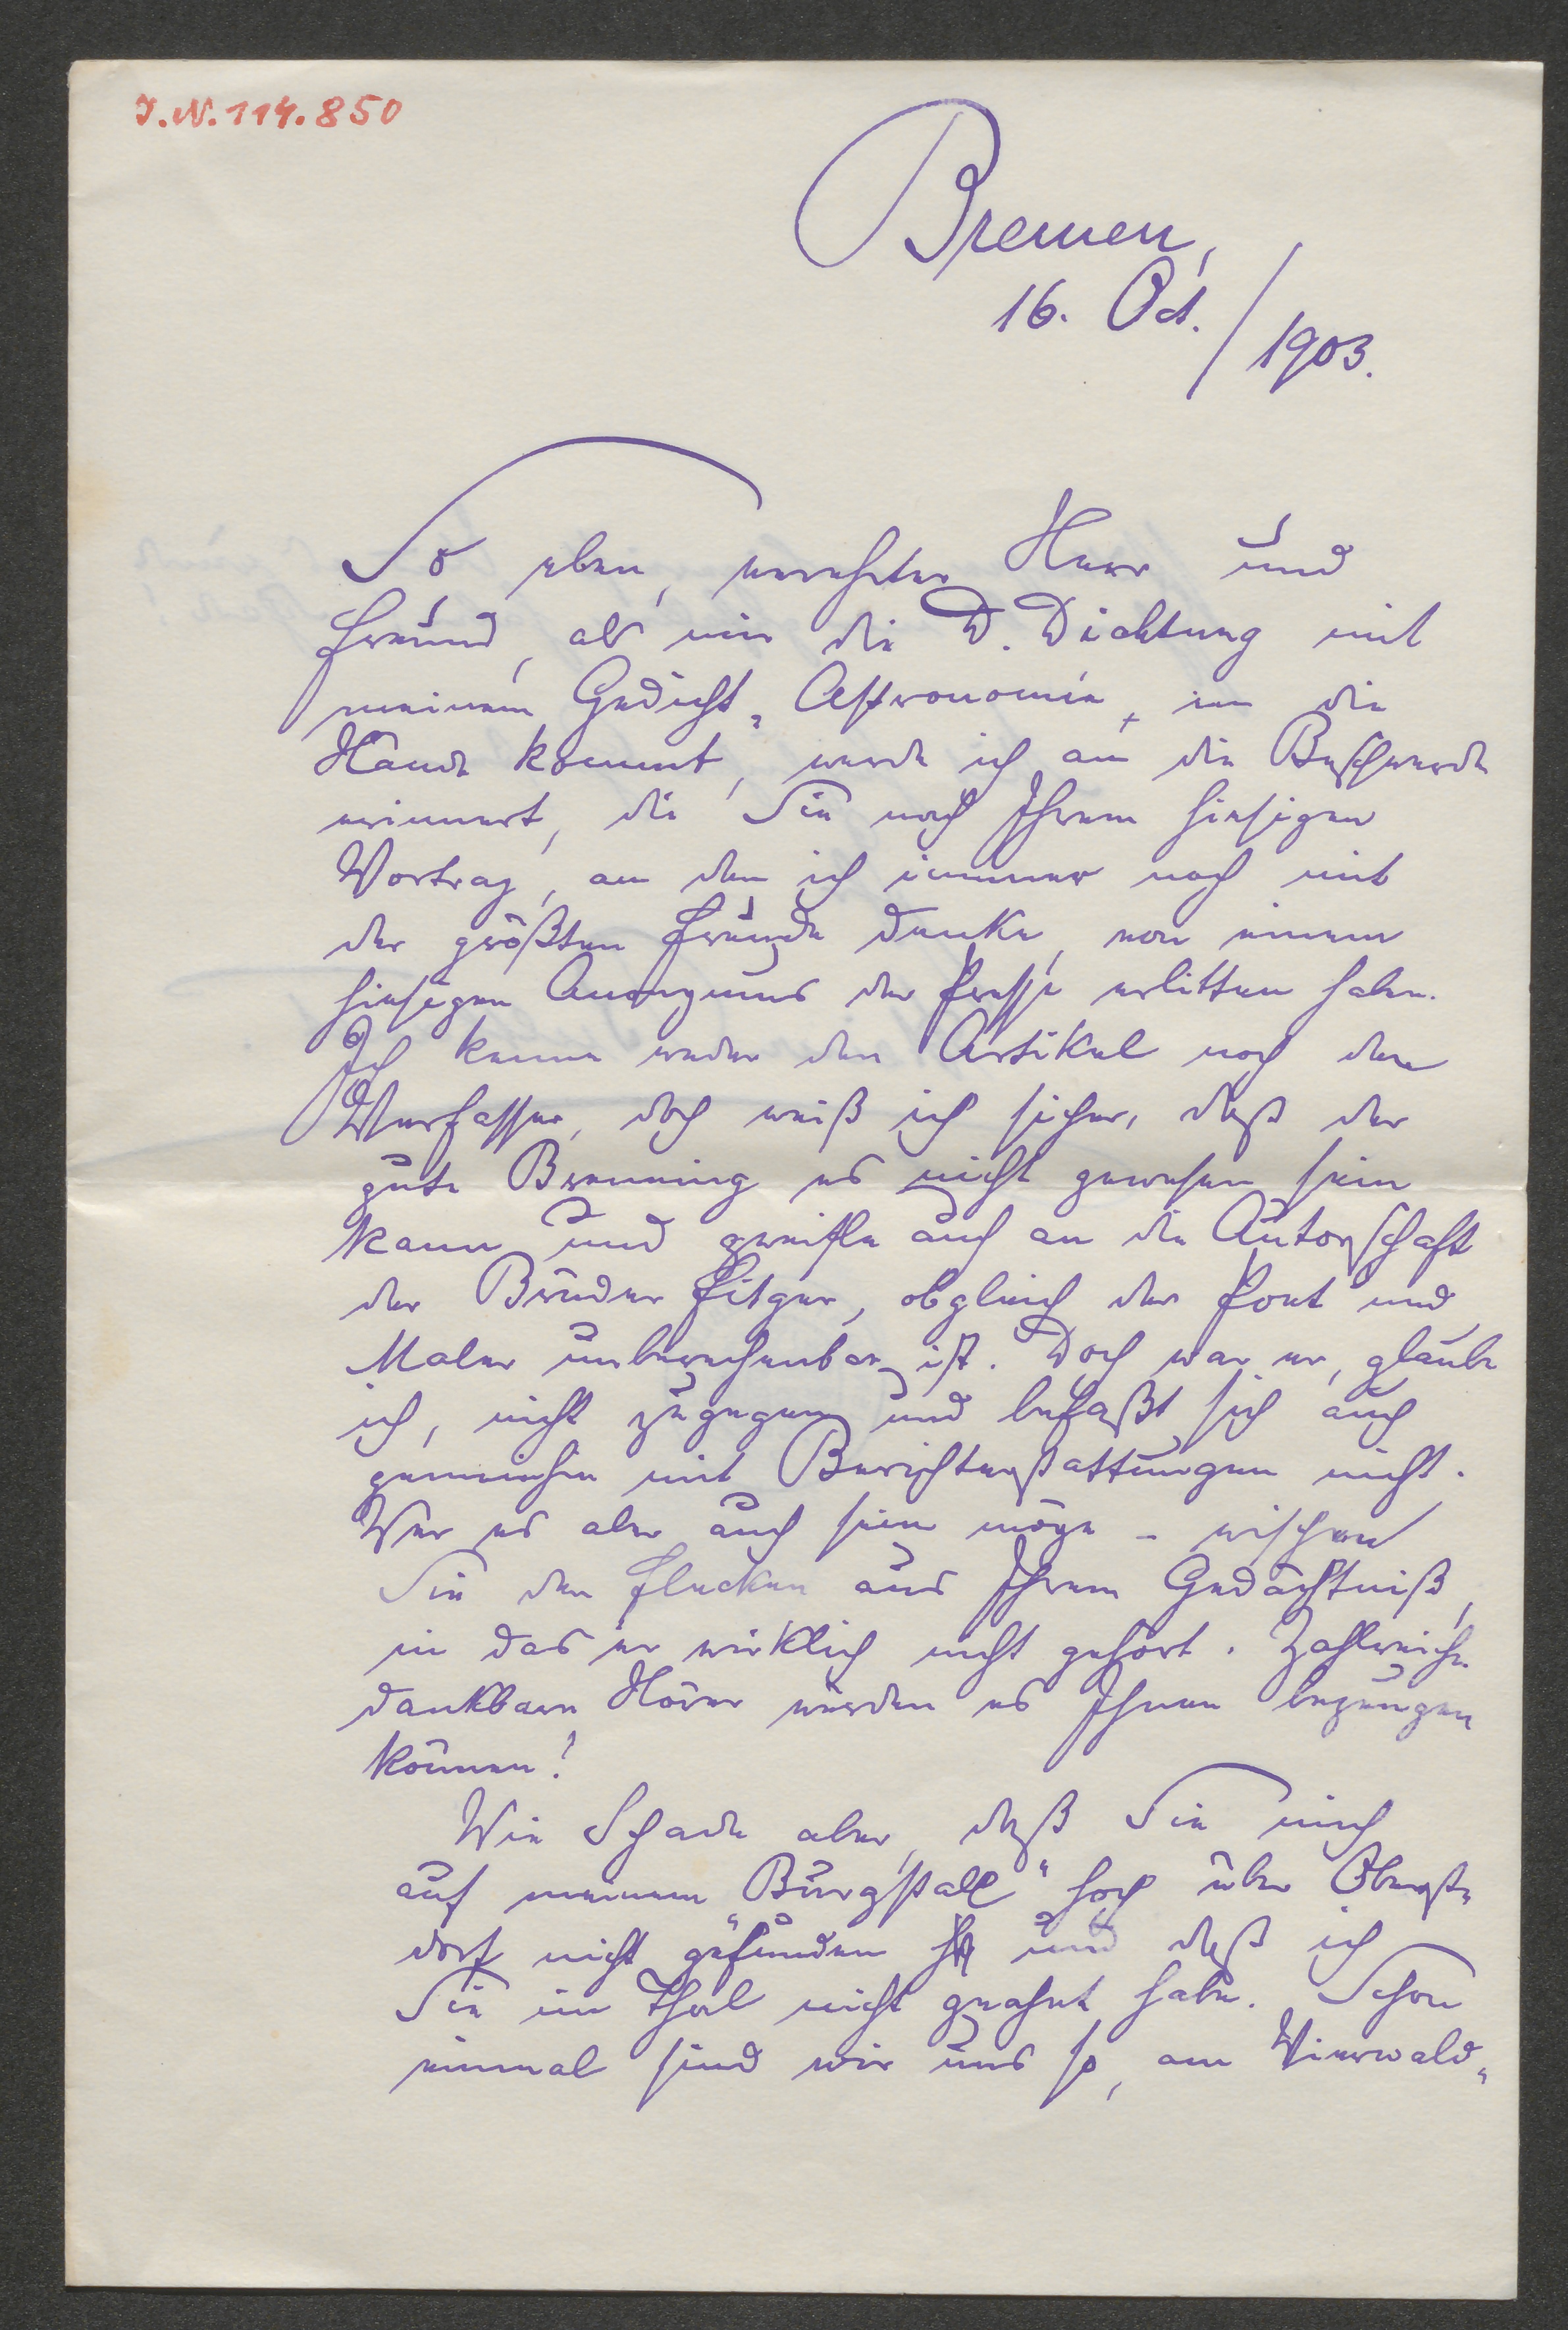 I.N. 114.850
Bremen,
16. Oct./1903.
So eben, verehrter Herr und
Freund, als mir die D. Dichtung mit
meinem Gedicht „Astronomie“ in die
Hände kommt, werde ich an die Beschwerde
erinnert, die Sie nach Ihrem hiesigen
Vortrag, an den ich immer noch mit
der größten Freude denke, von einem
hiesigen Anonymus der Presse erlitten haben.
Ich kenne weder den Artikel noch den
Verfasser, doch weiß ich sicher, daß der
gute Brenning es nicht gewesen sein
kann und zweifle auch an die Autorschaft
der Brüder Fitger, obgleich der Poet und
Maler unberechenbar ist. Doch war er, glaube
ich, nicht zugegen und befaßt sich auch
gemeinhin mit Berichterstattungen nicht.
Wer es aber auch sein möge – wischen
Sie den Flecken aus Ihrem Gedächtniß,
in das er wirklich nicht gehört. Zahlreiche
dankbare Hörer werden es Ihnen bezeugen
können!
Wie Schade aber, daß Sie mich
auf meinem „Burgstall“ hoch über Oberst-
dorf nicht gefunden und daß ich
Sie im Thal nicht geahnt habe. Schon
einmal sind wir uns so, am Vierwald-